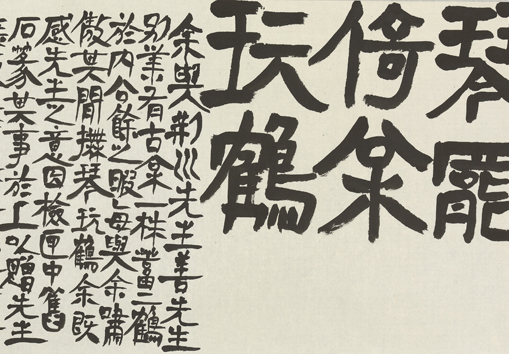 琴罷
倚枀
玩鶴
余與荊川先生善先生
別業有古枀一株畜二鶴
於內公餘之暇每與余嘯
傲其間撫琴玩鶴余既
感先生之意因檢匣中舊
石篆其事於上以贈先生